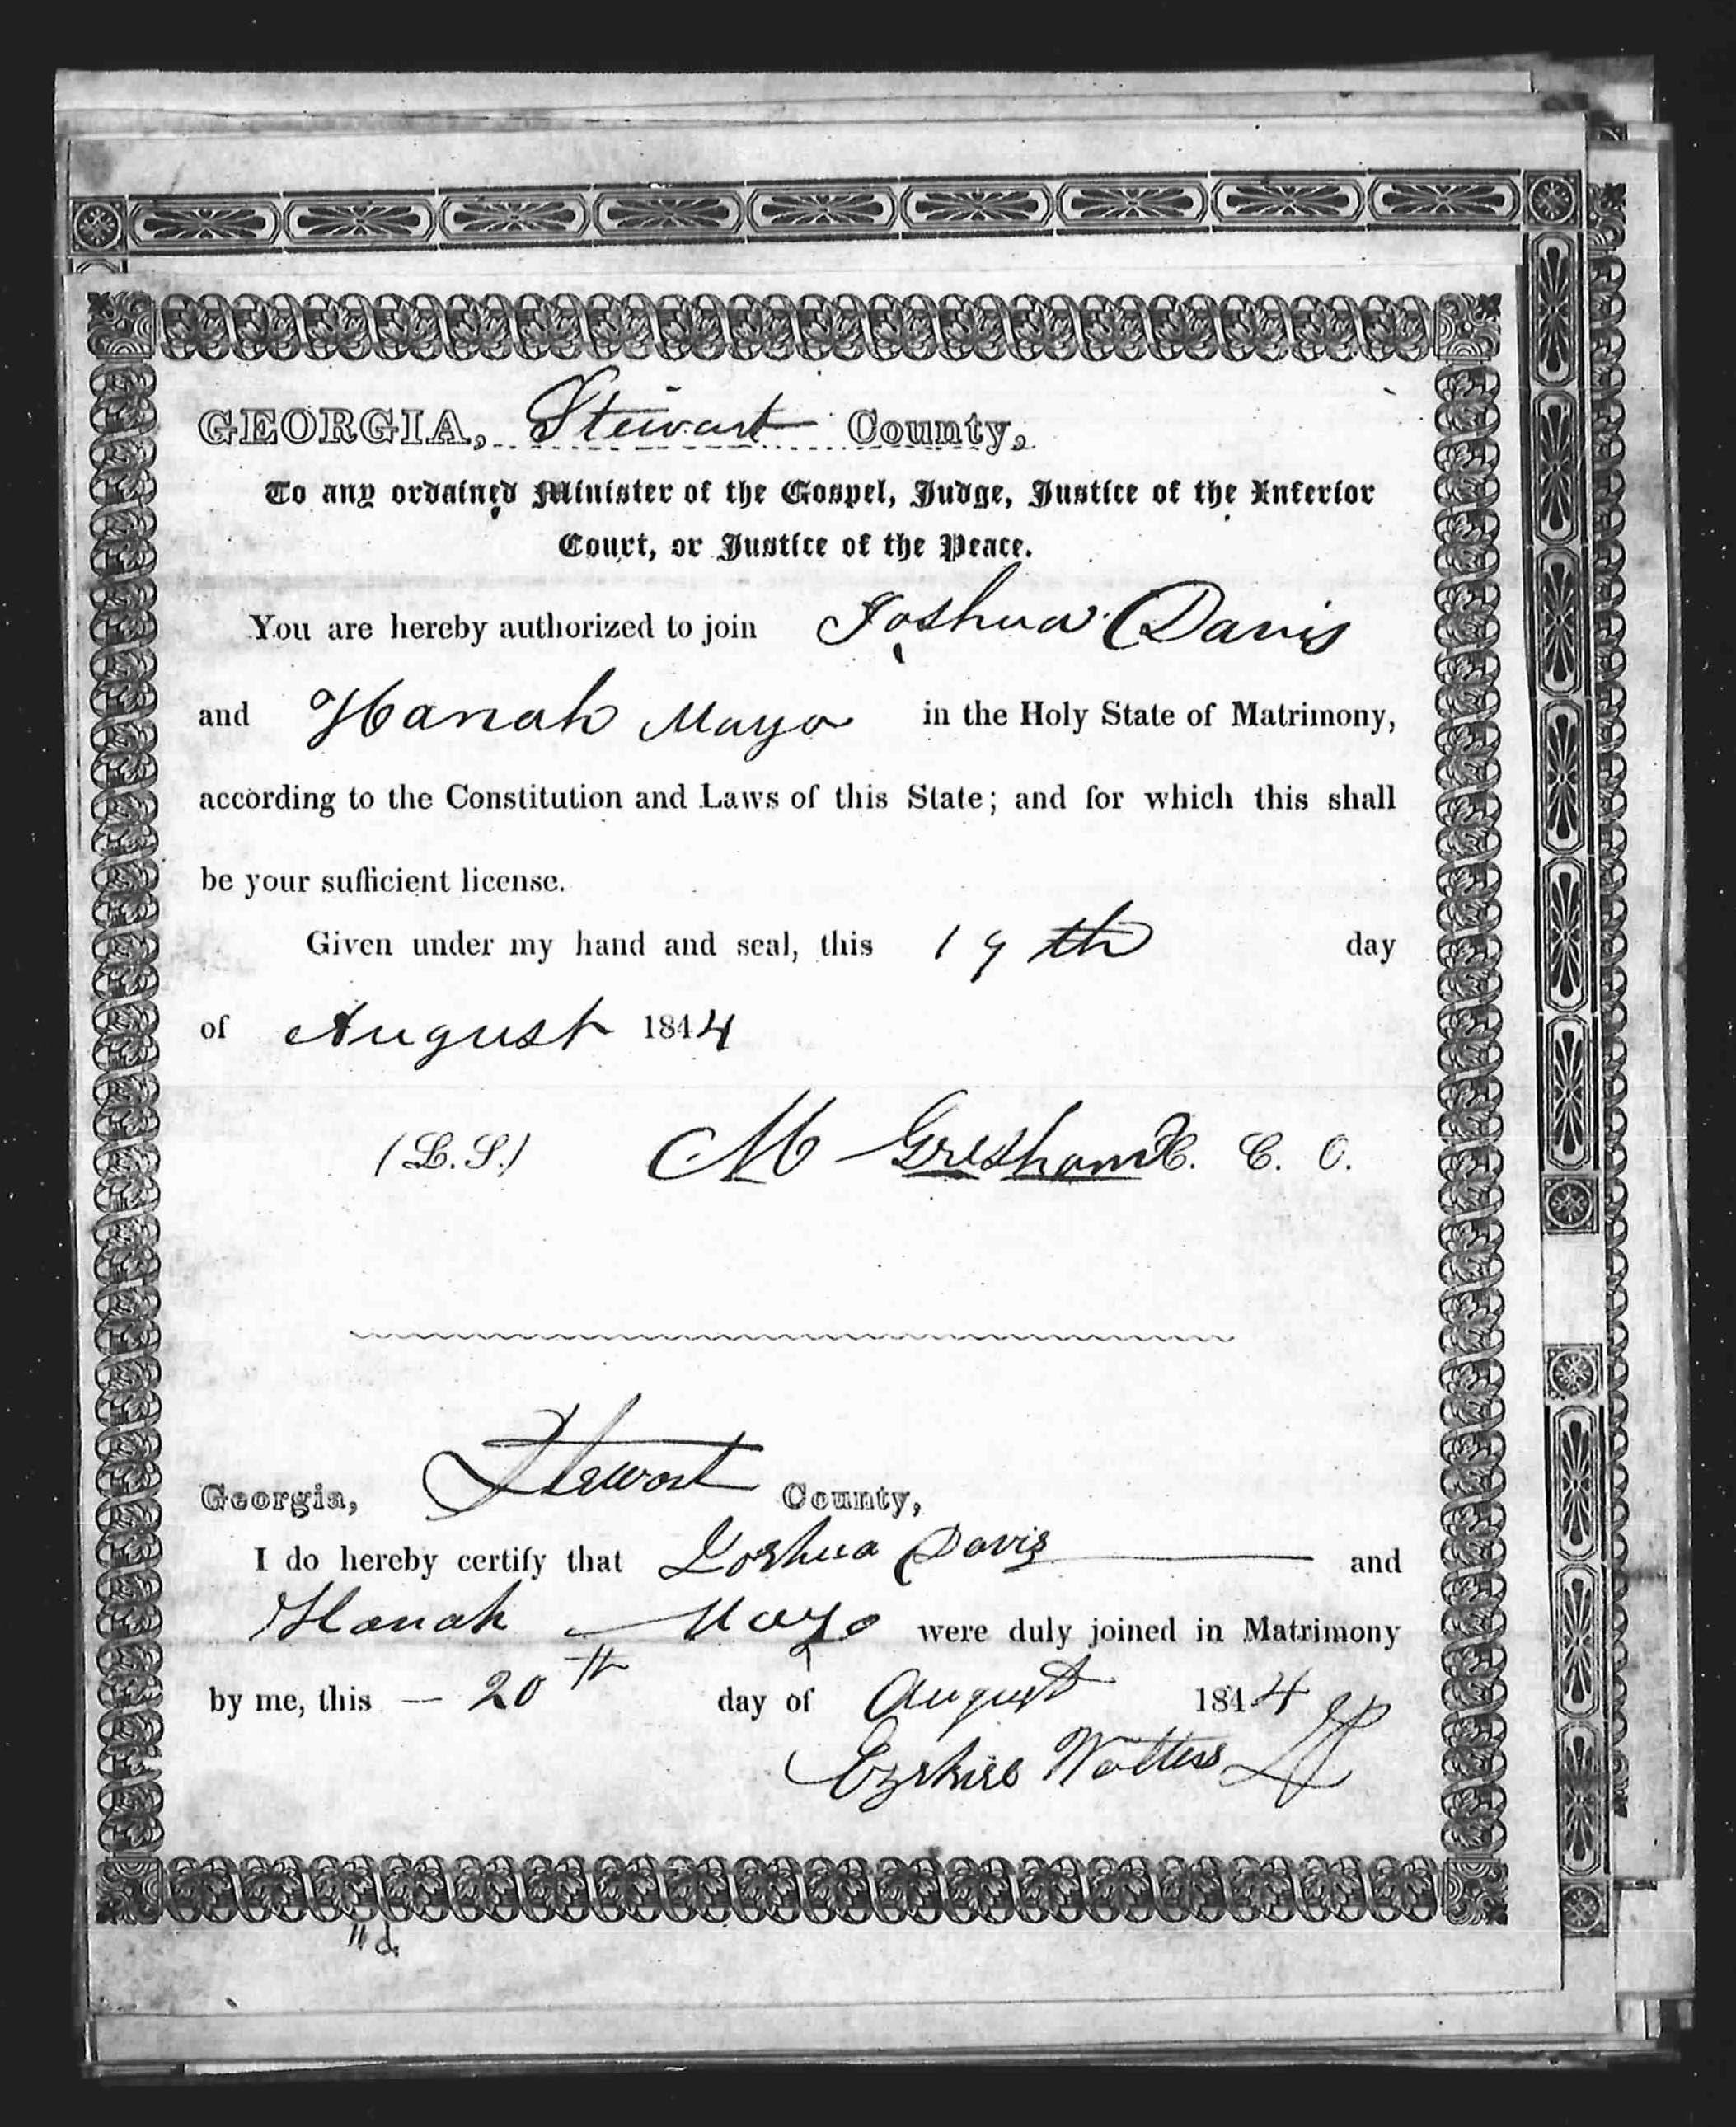 GEORGIA, Stewart County,
To any ordained Minister of the Gospel, Judge, Justice of the Inferior
Court, or Justice of the Peace.
You are hereby authorized to join Joshua Davis
and Hanah Mayo in the Holy State of Matrimony,
according to the Constitution and Laws of this State; and for which this shall
be your sufficient license.
Given under my hand and seal, this 19th day
of August 1844
(L.S.) M Gresham C. C. O.
Georgia, Stewart County,
I do hereby certify that Joshua Davis and
Hanah Mayo were duly joined in Matrimony
by me, this 20th day of August 1844
Ezekiel Watters JP